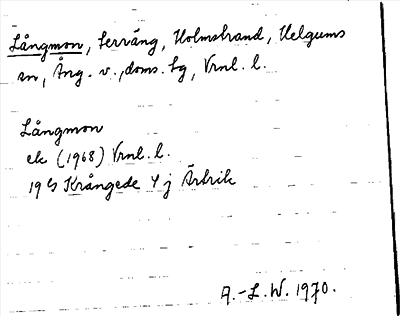 Långmon, Terräng, Holmstrand, Helgums
sn, Ång. v., doms. hg, Vrnl. l.
Långmon
ek (1968) Vrnl. l.
19 G Krångede 4 j Ärtrik
A.-L. W. 1970.